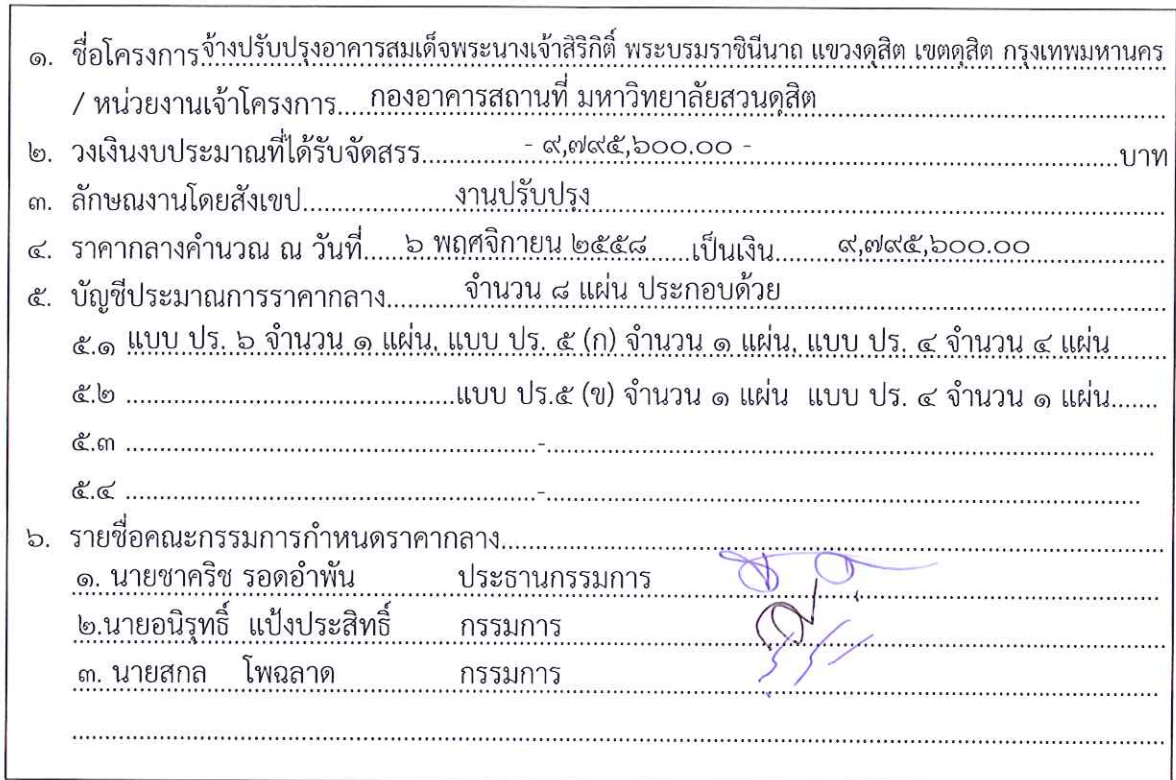 ๑. ชื่อโครงการ จ้างปรับปรุงอาคารสมเด็จพระนางเจ้าสิริกิติ์ พระบรมราชินีนาถ แขวงดุสิต เขตดุสิต กรุงเทพมหานคร
/ หน่วยงานเจ้าโครงการ.....กองอาคารสถานที่ มหาวิทยาลัยสวนดุสิต
๒. วงเงินงบประมาณที่ได้รับจัดสรร............- ๙,๗๙๕,๖๐๐.๐๐ -............บาท
๓. ลักษณงานโดยสังเขป............งานปรับปรุง
๔. ราคากลางคำนวณ ณ วันที่.....๖ พฤศจิกายน ๒๕๕๘.....เป็นเงิน........๙,๗๙๕,๖๐๐.๐๐
๕. บัญชีประมาณการราคากลาง..........จำนวน ๘ แผ่น ประกอบด้วย
๕.๑ แบบ ปร. ๖ จำนวน ๑ แผ่น, แบบ ปร. ๕ (ก) จำนวน ๑ แผ่น, แบบ ปร. ๔ จำนวน ๔ แผ่น
๕.๒ ............แบบ ปร.๕ (ข) จำนวน ๑ แผ่น แบบ ปร. ๔ จำนวน ๑ แผ่น.......
๕.๓ ............-............
๕.๔ ............-............
๖. รายชื่อคณะกรรมการกำหนดราคากลาง............
๑. นายชาคริช รอดอำพัน ประธานกรรมการ
๒.นายอนิรุทธิ์ แป้งประสิทธิ์ กรรมการ
๓. นายสกล โพฉลาด กรรมการ